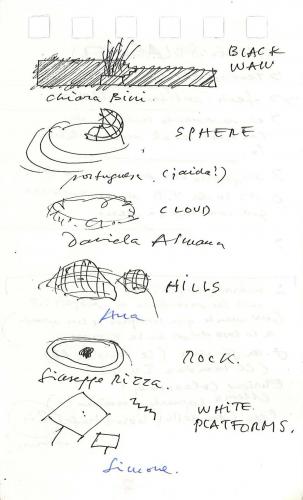 BLACK
WALL
Chiara Bini.
SPHERE
portuguesa (¡aida!)
CLOUD
Daniela
HILLS
Ana
ROCK.
Giuseppe Rizza.
WHITE
PLATFORMS.
Simone.